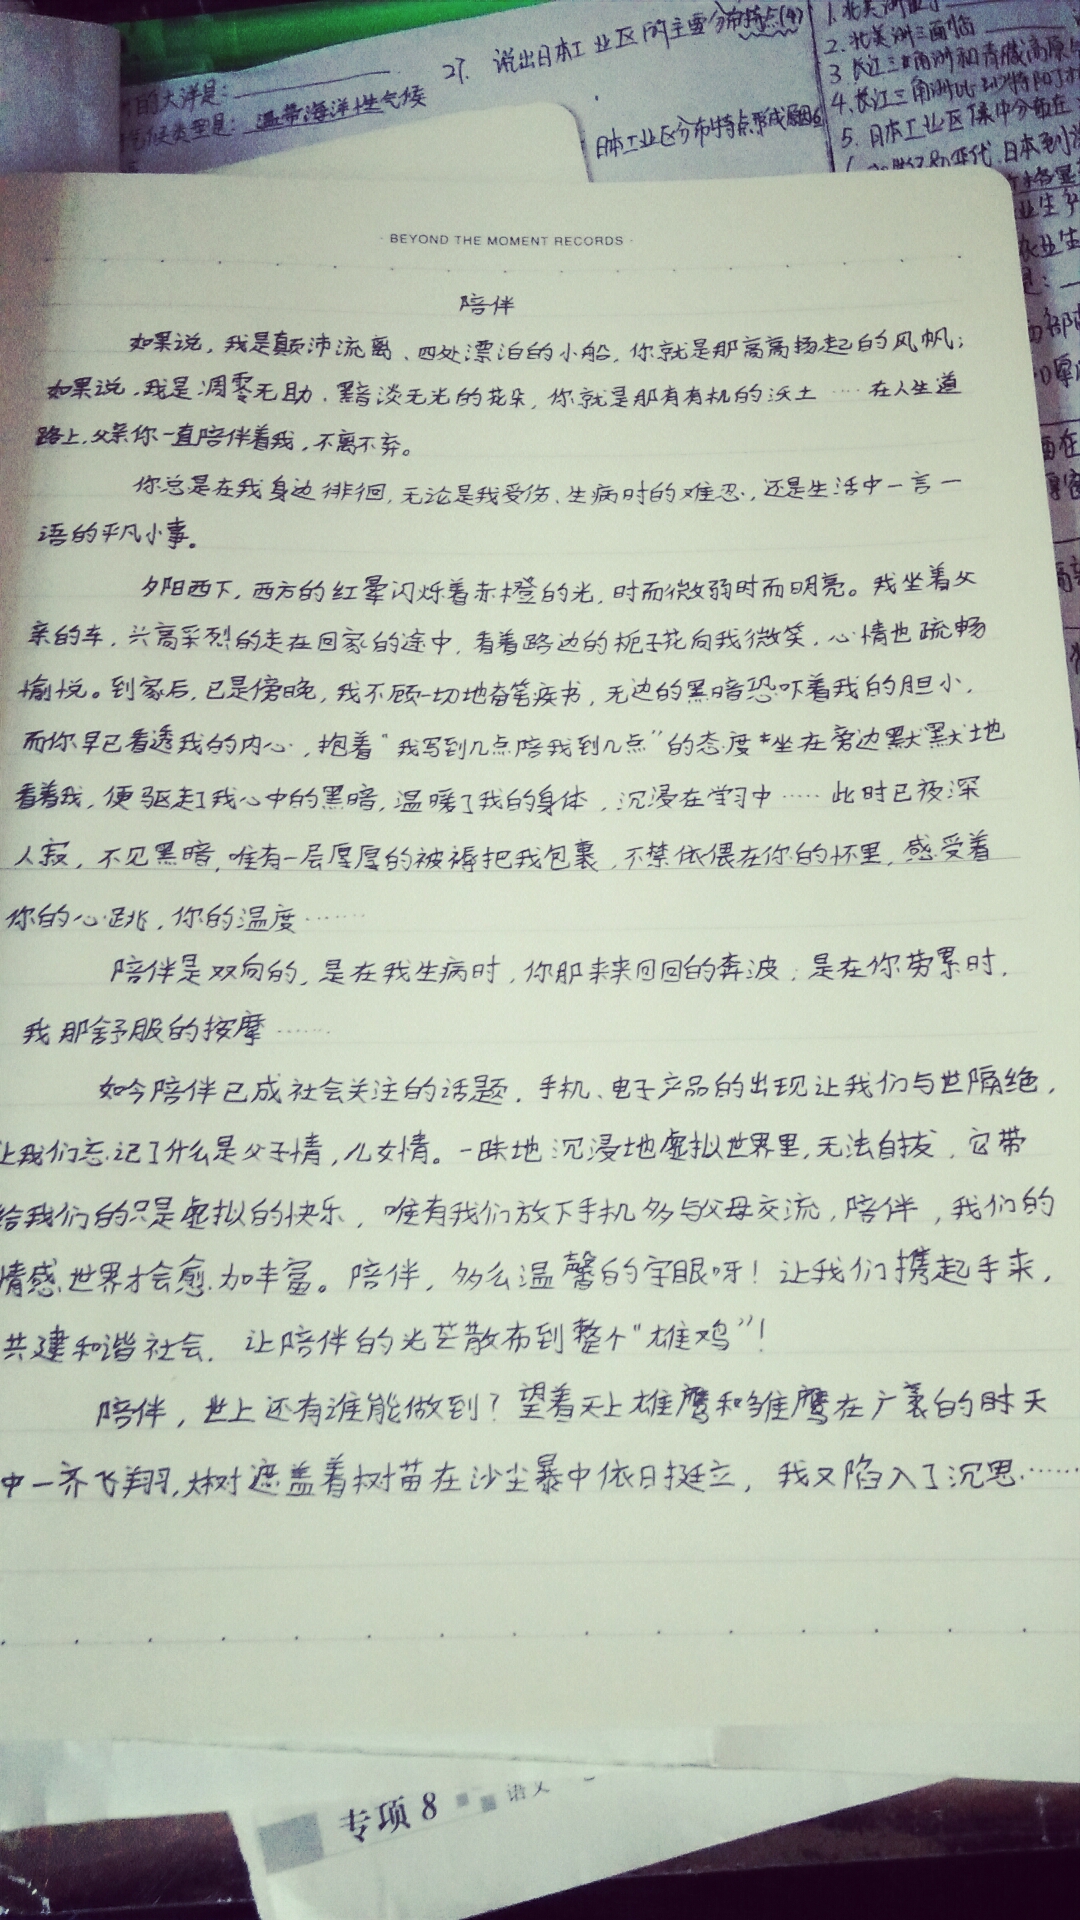 27. 说出日本工业区的主要分布特点(4)
的大洋是:
气候类型是: 温带海洋性气候
日本工业区分布特点形成原因
2. 北美洲三面临
3 长江三角洲和青藏高原
4. 长江三角洲比
5. 日本工业区集中分布在
BEYOND THE MOMENT RECORDS
陪伴
如果说,我是颠沛流离、四处漂泊的小船,你就是那高高扬起的风帆;
如果说,我是凋零无助、黯淡无光的花朵,你就是那有有机的沃土……在人生道
路上,父亲你一直陪伴着我,不离不弃。
你总是在我身边徘徊,无论是我受伤、生病时的难忍,还是生活中一言一
语的平凡小事。
夕阳西下,西方的红晕闪烁着赤橙的光,时而微弱时而明亮。我坐着父
亲的车,兴高采烈的走在回家的途中,看着路边的栀子花向我微笑,心情也疏畅
愉悦。到家后,已是傍晚,我不顾一切地奋笔疾书,无边的黑暗恐吓着我的胆小,
而你早已看透我的内心,抱着“我写到几点陪我到几点”的态度坐在旁边默默地
看着我,便驱走了我心中的黑暗,温暖了我的身体,沉浸在学习中……此时已夜深
人寂,不见黑暗,唯有一层厚厚的被褥把我包裹,不禁依偎在你的怀里,感受着
你的心跳,你的温度……
陪伴是双向的,是在我生病时,你那来来回回的奔波;是在你劳累时,
我那舒服的按摩……
如今陪伴已成社会关注的话题,手机、电子产品的出现让我们与世隔绝,
让我们忘记了什么是父子情,儿女情。一味地沉浸地虚拟世界里,无法自拔,它带
给我们的只是虚拟的快乐,唯有我们放下手机多与父母交流,陪伴,我们的
情感世界才会愈加丰富。陪伴,多么温馨的字眼呀!让我们携起手来,
共建和谐社会,让陪伴的光芒散布到整个“雄鸡”!
陪伴,世上还有谁能做到?望着天上雄鹰和雏鹰在广袤的时天
中一齐飞翔,大树遮盖着树苗在沙尘暴中依旧挺立,我又陷入了沉思……
专项8
语文